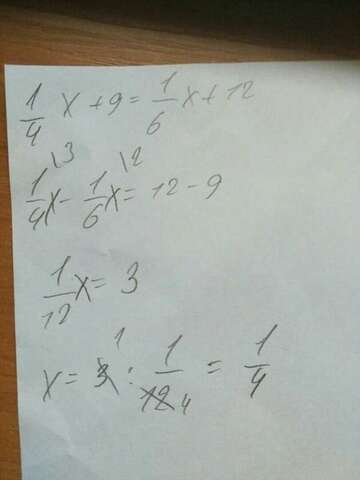 1/4 x + 9 = 1/6 x + 12
1/4 \3 x - 1/6 \2 x = 12 - 9
1/12 x = 3
x = 3 1 : 1/12 4 = 1/4